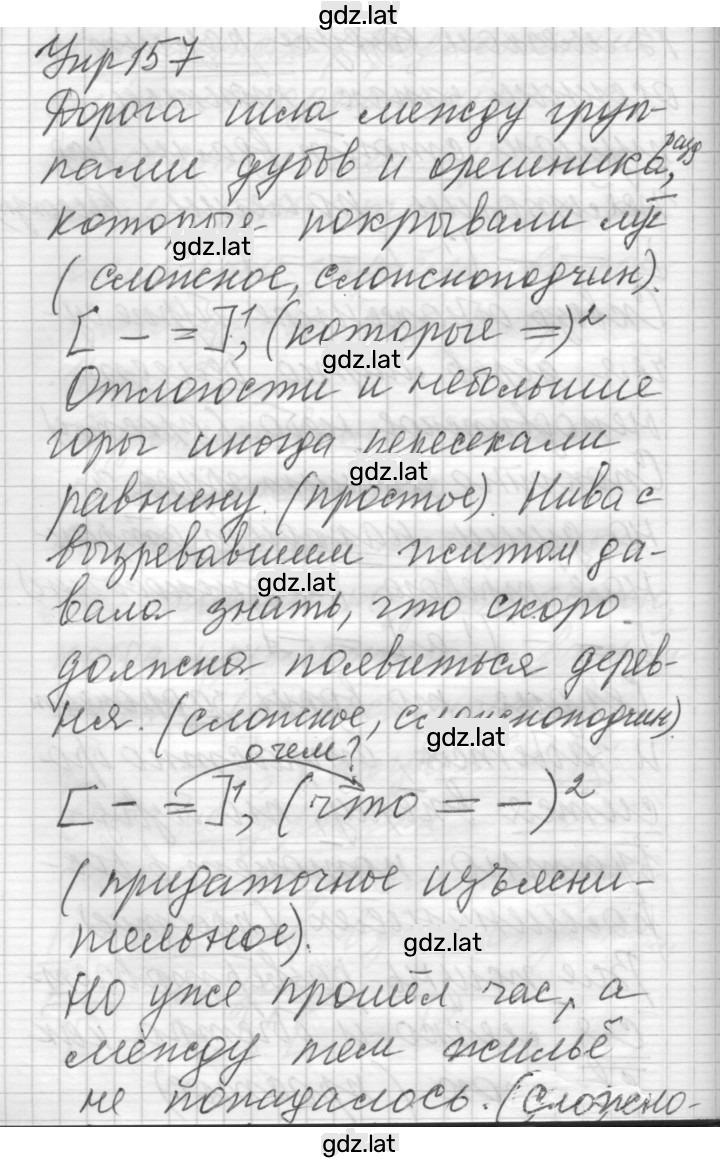 gdz.lat
Упр 157
Дорога шла между груп-
пами дубов и орешника,
которые покрывали луг
gdz.lat
(сложное, сложноподчин).
[ – = ]¹, (которые =)²
gdz.lat
Отлогости и небольшие
горы иногда пересекали
gdz.lat
равнину. (простое). Нива с
вызревавшим житом да-
gdz.lat
вала знать, что скоро
должна появиться дерев-
ня. (сложное, сложноподчин).
gdz.lat
о чем?
[ – = ]¹, (что = –)²
(придаточное изъясни-
тельное).
gdz.lat
Но уже прошёл час, а
между тем жильё
не попадалось. (сложно-
gdz.lat